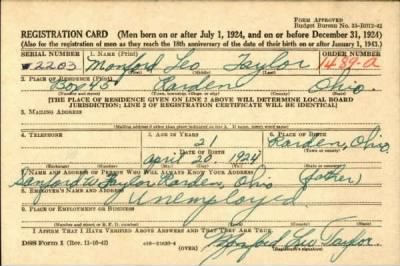 Form Approved
Budget Bureau No. 33-R012-42
REGISTRATION CARD (Men born on or after July 1, 1924, and on or before December 31, 1924)
(Also for the registration of men as they reach the 18th anniversary of the date of their birth on or after January 1, 1943.)
SERIAL NUMBER 1. NAME (Print) ORDER NUMBER
W 2203 Monford Leo Taylor 1489-a
2. PLACE OF RESIDENCE (Print)
Box 45 Rarden Ohio
[THE PLACE OF RESIDENCE GIVEN ON LINE 2 ABOVE WILL DETERMINE LOCAL BOARD
JURISDICTION; LINE 2 OF REGISTRATION CERTIFICATE WILL BE IDENTICAL]
3. MAILING ADDRESS
4. TELEPHONE 5. AGE IN YEARS 6. PLACE OF BIRTH
Rarden, Ohio.
DATE OF BIRTH
April 20 1924
7. NAME AND ADDRESS OF PERSON WHO WILL ALWAYS KNOW YOUR ADDRESS
Sanford W Taylor Rarden, Ohio (father)
8. EMPLOYER'S NAME AND ADDRESS
Unemployed
9. PLACE OF EMPLOYMENT OR BUSINESS
I AFFIRM THAT I HAVE VERIFIED ABOVE ANSWERS AND THAT THEY ARE TRUE.
DSS Form 1 (Rev. 11-16-42) (OVER) Monford Leo Taylor